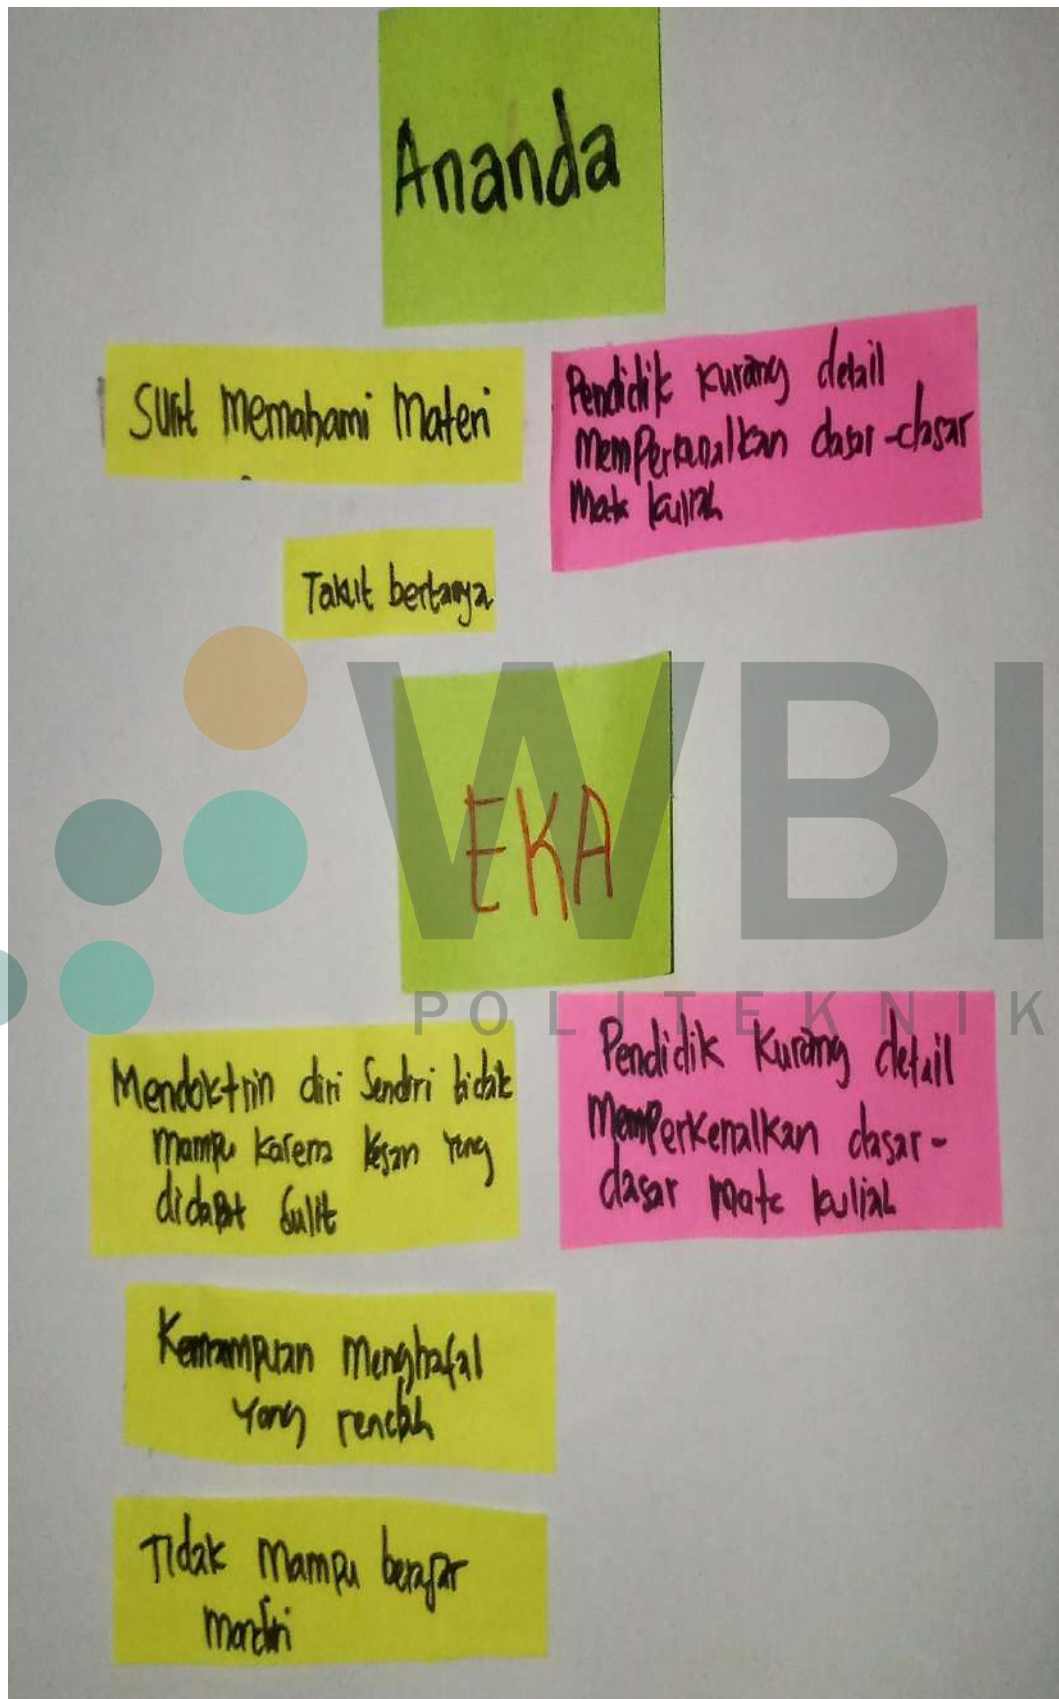 Ananda
Sulit Memahami Materi
Pendidik kurang detail
memperkenalkan dasar-dasar
Mata kuliah
Takut bertanya
WBI
POLITEKNIK
EKA
Mendoktrin diri sendiri tidak
mampu karena kesan yang
didapat sulit
Pendidik kurang detail
memperkenalkan dasar-
dasar mata kuliah
Kemampuan menghafal
yang rendah
Tidak Mampu berajar
mandiri